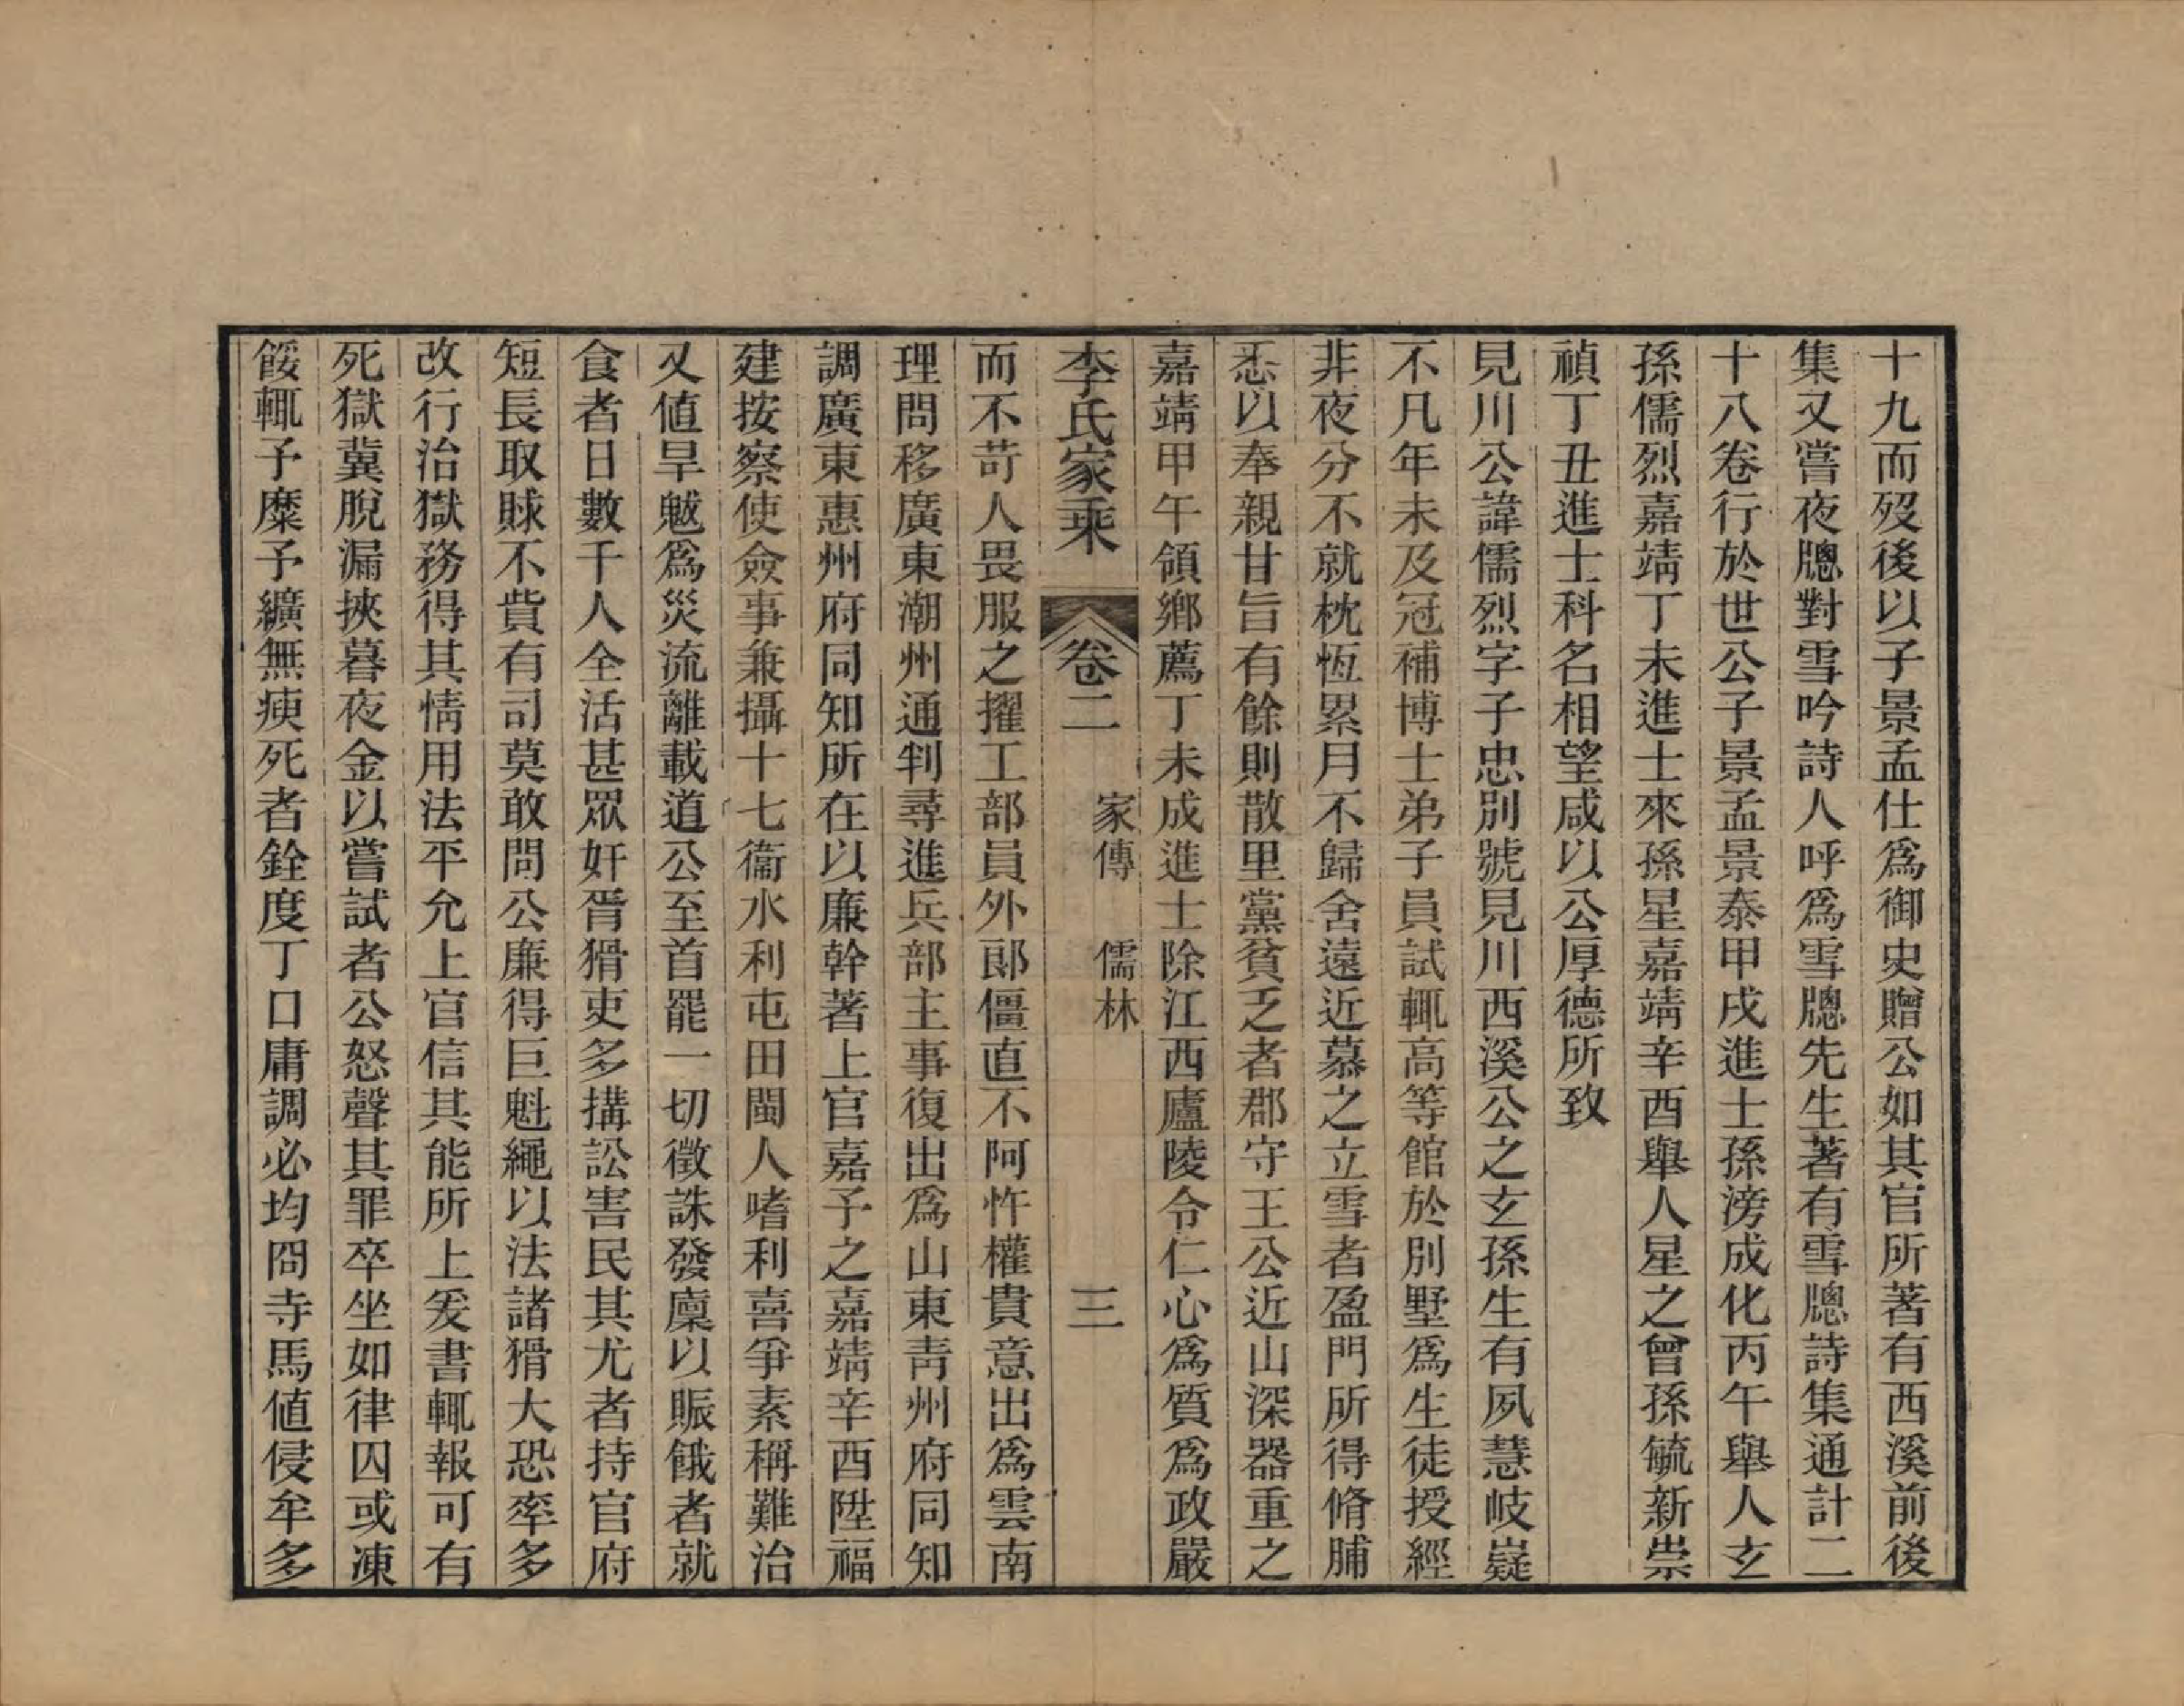 十九而歿後以子景孟仕爲御史贈公如其官所著有西溪前後
集又嘗夜牕對雪吟詩人呼爲雪牕先生著有雪牕詩集通計二
十八卷行於世公子景孟景泰甲戌進士孫滂成化丙午舉人玄
孫儒烈嘉靖丁未進士來孫星嘉靖辛酉舉人星之曾孫毓新崇
禎丁丑進士科名相望咸以公厚德所致
見川公諱儒烈字子忠別號見川西溪公之玄孫生有夙慧岐嶷
不凡年未及冠補博士弟子員試輒高等館於別墅爲生徒授經
非夜分不就枕恆累月不歸舍遠近慕之立雪者盈門所得脩脯
悉以奉親甘旨有餘則散里黨貧乏者郡守王公近山深器重之
嘉靖甲午領鄉薦丁未成進士除江西廬陵令仁心爲質爲政嚴
李氏家乘 卷二 家傳 儒林 三
而不苛人畏服之擢工部員外郎僵直不阿忤權貴意出爲雲南
理問移廣東潮州通判尋進兵部主事復出爲山東青州府同知
調廣東惠州府同知所在以廉幹著上官嘉予之嘉靖辛酉陞福
建按察使僉事兼攝十七衞水利屯田閩人嗜利喜爭素稱難治
又值旱魃爲災流離載道公至首罷一切徵誅發廩以賑餓者就
食者日數千人全活甚眾奸胥猾吏多搆訟害民其尤者持官府
短長取賕不貲有司莫敢問公廉得巨魁繩以法諸猾大恐率多
改行治獄務得其情用法平允上官信其能所上爰書輒報可有
死獄冀脫漏挾暮夜金以嘗試者公怒聲其罪卒坐如律囚或凍
餒輒予糜予纊無瘐死者銓度丁口庸調必均冏寺馬値侵牟多